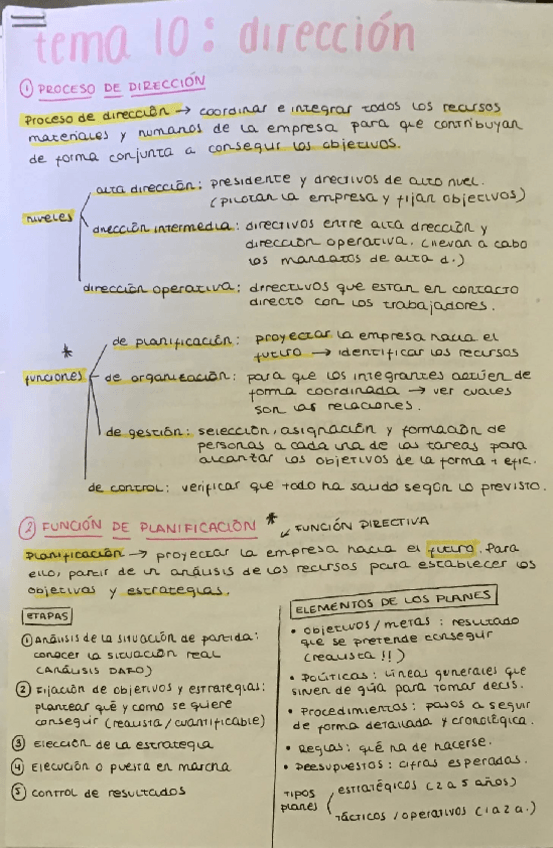 tema 10: dirección
① PROCESO DE DIRECCIÓN
Proceso de dirección → coordinar e integrar todos los recursos
materiales y humanos de la empresa para que contribuyan
de forma conjunta a conseguir los objetivos.
niveles
alta dirección: presidente y directivos de alto nivel.
(pilotan la empresa y fijan objetivos)
dirección intermedia: directivos entre alta dirección y
dirección operativa. (llevan a cabo
los mandatos de alta d.)
dirección operativa: directivos que estan en contacto
directo con los trabajadores.
*
funciones
de planificación: proyectar la empresa hacia el
futuro → identificar los recursos
de organización: para que los integrantes actúen de
forma coordinada → ver cuales
son las relaciones.
de gestión: selección, asignación y formación de
personas a cada una de las tareas para
alcanzar los objetivos de la forma + efic.
de control: verificar que todo ha salido según lo previsto.
② FUNCIÓN DE PLANIFICACIÓN * ↙ FUNCIÓN DIRECTIVA
Planificación → proyectar la empresa hacia el futuro. Para
ello, partir de un análisis de los recursos para establecer los
objetivos y estrategias.
ETAPAS
① Análisis de la situación de partida:
conocer la situación real
(ANÁLISIS DAFO)
② Fijación de objetivos y estrategias:
plantear qué y como se quiere
conseguir (realista / cuantificable)
③ Elección de la estrategia
④ Ejecución o puesta en marcha
⑤ Control de resultados
ELEMENTOS DE LOS PLANES
• Objetivos / metas: resultado
que se pretende conseguir
(realista !!)
• Políticas: líneas generales que
sirven de guía para tomar decis.
• Procedimientos: pasos a seguir
de forma detallada y cronológica.
• Reglas: qué ha de hacerse.
• Presupuestos: cifras esperadas.
TIPOS
planes
estratégicos (2 a 5 años)
tácticos / operativos (1 a 2 a.)